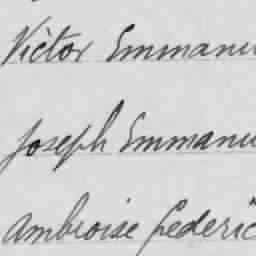 Victor Emmanu
Joseph Emmanu
Ambroise Federic